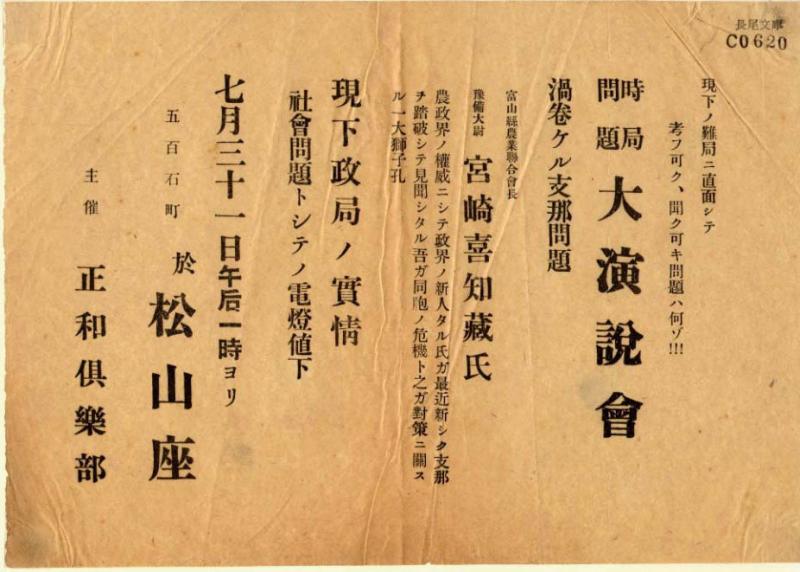 長尾文庫
C0620
現下ノ難局ニ直面シテ
考フ可ク、聞ク可キ問題ハ何ゾ!!!
時局問題 大演說會
渦卷ケル支那問題
富山縣農業聯合會長
豫備大尉 宮崎喜知藏氏
農政界ノ權威ニシテ政界ノ新人タル氏ガ最近新シク支那
ヲ踏破シテ見聞シタル吾ガ同胞ノ危機ト之ガ對策ニ關ス
ル一大獅子孔
現下政局ノ實情
社會問題トシテノ電燈値下
七月三十一日午后一時ヨリ
五百石町 於 松山座
主催 正和俱樂部